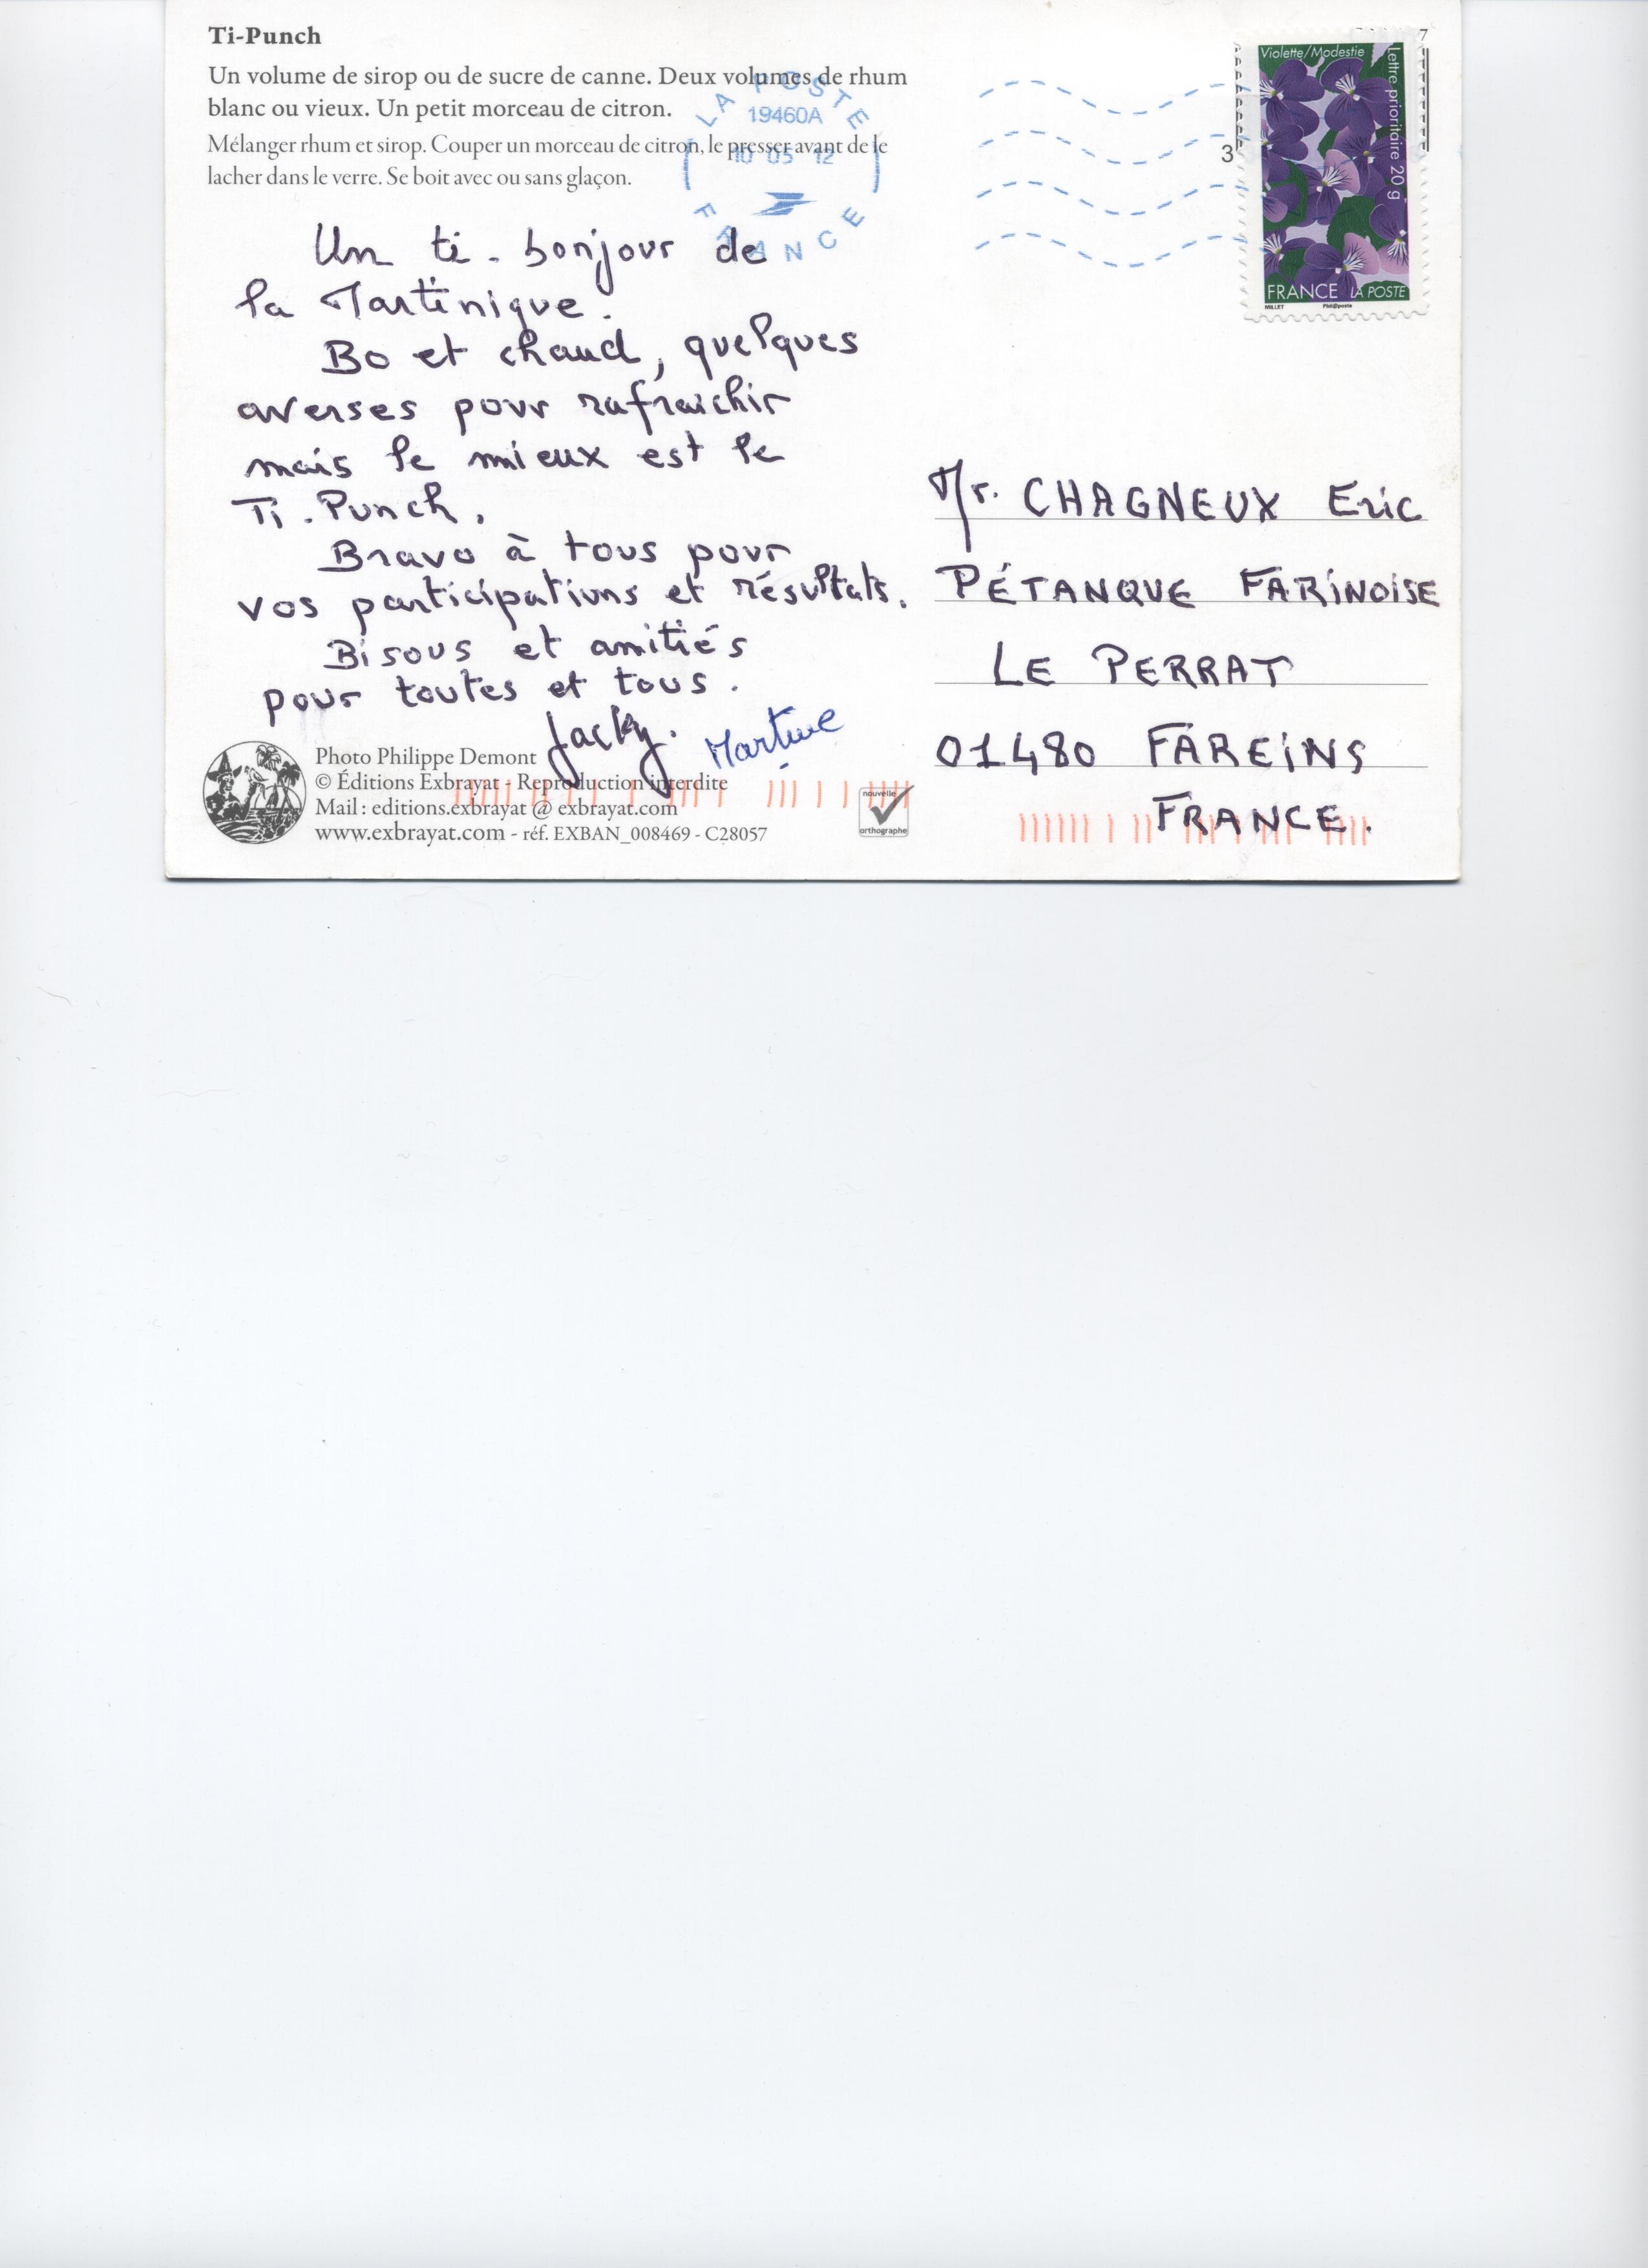 Ti-Punch
Un volume de sirop ou de sucre de canne. Deux volumes de rhum
blanc ou vieux. Un petit morceau de citron.
Mélanger rhum et sirop. Couper un morceau de citron, le presser avant de le
lacher dans le verre. Se boit avec ou sans glaçon.
LA POSTE
19460A
10 05 12
FRANCE
Un ti. bonjour de
la Martinique.
Bo et chaud, quelques
averses pour rafraichir
mais le mieux est le
Ti. Punch.
Bravo à tous pour
vos participations et résultats.
Bisous et amitiés
pour toutes et tous.
Jacky. Martine
Photo Philippe Demont
© Éditions Exbrayat - Reproduction interdite
Mail : editions.exbrayat @ exbrayat.com
www.exbrayat.com - réf. EXBAN_008469 - C28057
nouvelle
orthographe
7
3
Violette/Modestie
Lettre prioritaire 20 g
FRANCE LA POSTE
MILLET Phil@poste
Mr. CHAGNEUX Eric
PÉTANQUE FARINOISE
LE PERRAT
01480 FAREINS
FRANCE.